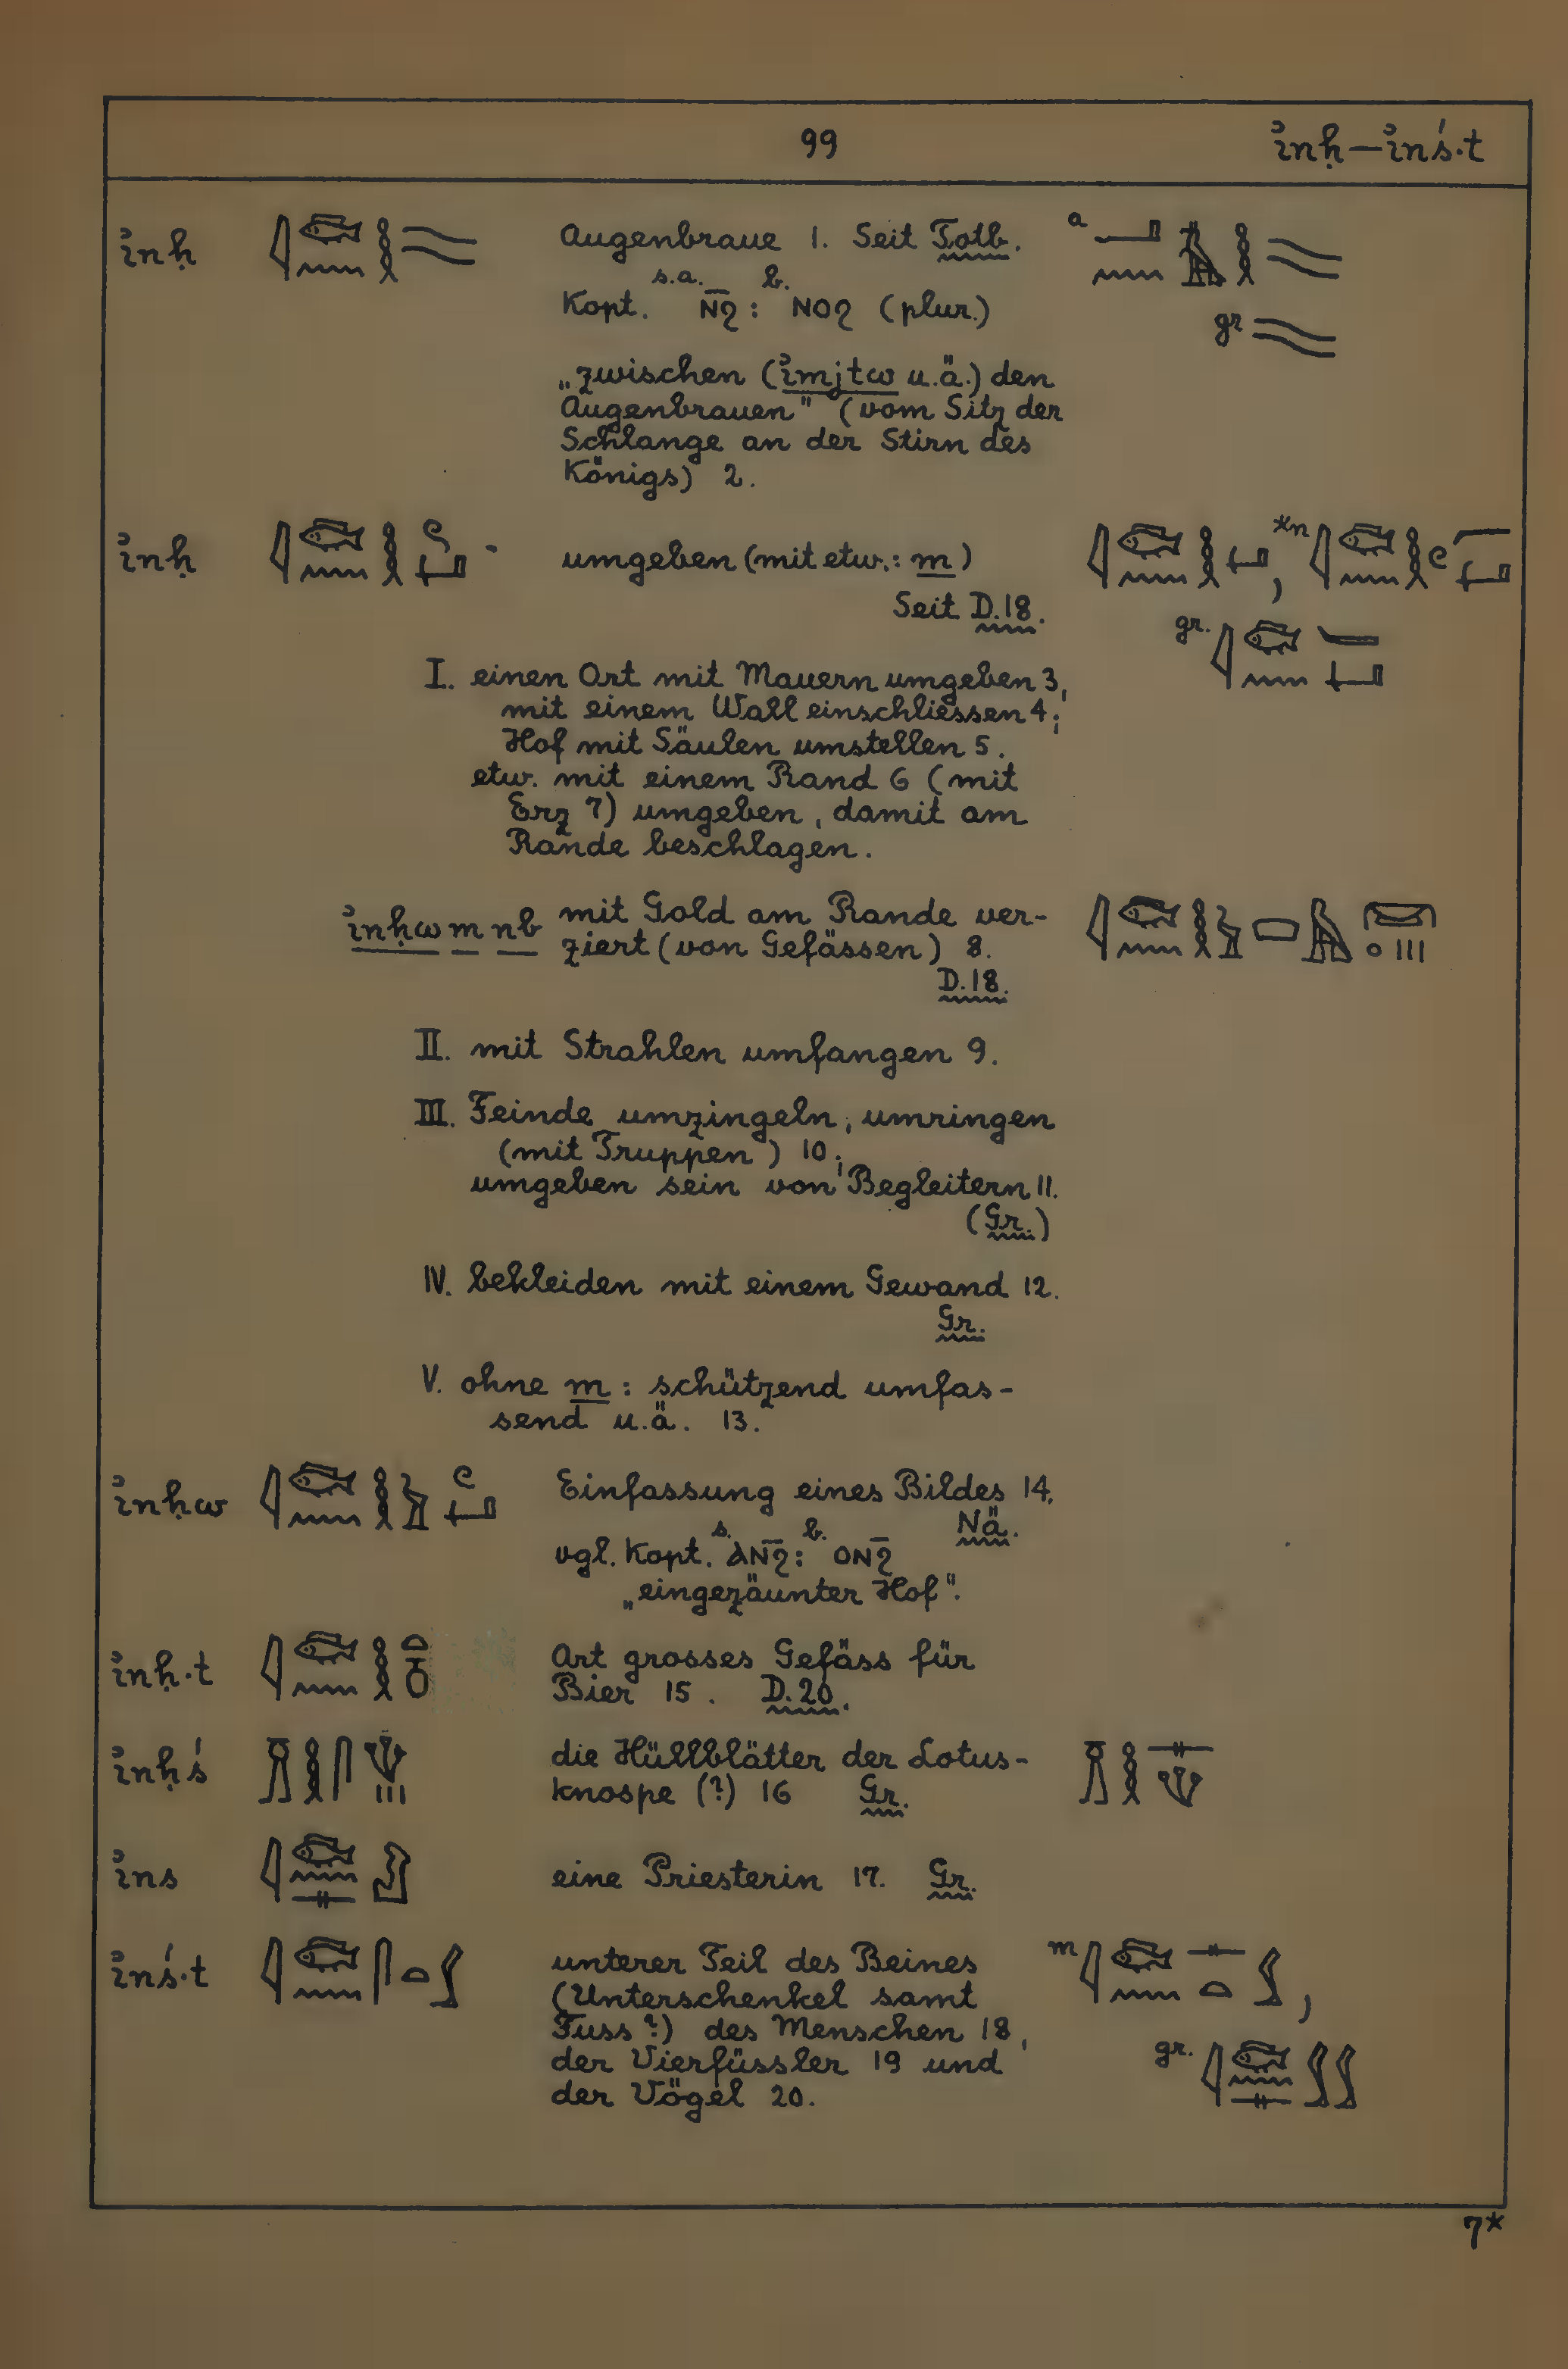 99 ỉnḥ—ỉnś·t
ỉnḥ Augenbraue 1. Seit Totb. a
s.a. b.
Kopt. N̄ϩ : ⲚⲞϩ (plur.) gr
„zwischen (ỉmjtw u.ä.) den
Augenbrauen" (vom Sitz der
Schlange an der Stirn des
Königs) 2.
ỉnḥ umgeben (mit etw.: m) , *n
Seit D.18. gr.
I. einen Ort mit Mauern umgeben 3,
mit einem Wall einschliessen 4;
Hof mit Säulen umstellen 5.
etw. mit einem Rand 6 (mit
Erz 7) umgeben, damit am
Rande beschlagen.
ỉnḥw m nb mit Gold am Rande ver-
ziert (von Gefässen) 8.
D.18.
II. mit Strahlen umfangen 9.
III. Feinde umzingeln, umringen
(mit Truppen) 10;
umgeben sein von Begleitern 11.
(Gr.)
IV. bekleiden mit einem Gewand 12.
Gr.
V. ohne m : schützend umfas-
send u.ä. 13.
ỉnḥw Einfassung eines Bildes 14.
Nä.
s. b.
vgl. Kopt. ⲀⲚ̄ϩ : ⲞⲚ̄ϩ
„eingezäunter Hof".
ỉnḥ·t Art grosses Gefäss für
Bier 15. D.20.
ỉnḥś die Hüllblätter der Lotus-
knospe (?) 16 Gr.
ỉns eine Priesterin 17. Gr.
ỉnś·t unterer Teil des Beines m ,
(Unterschenkel samt
Fuss?) des Menschen 18, gr.
der Vierfüssler 19 und
der Vögel 20.
7*